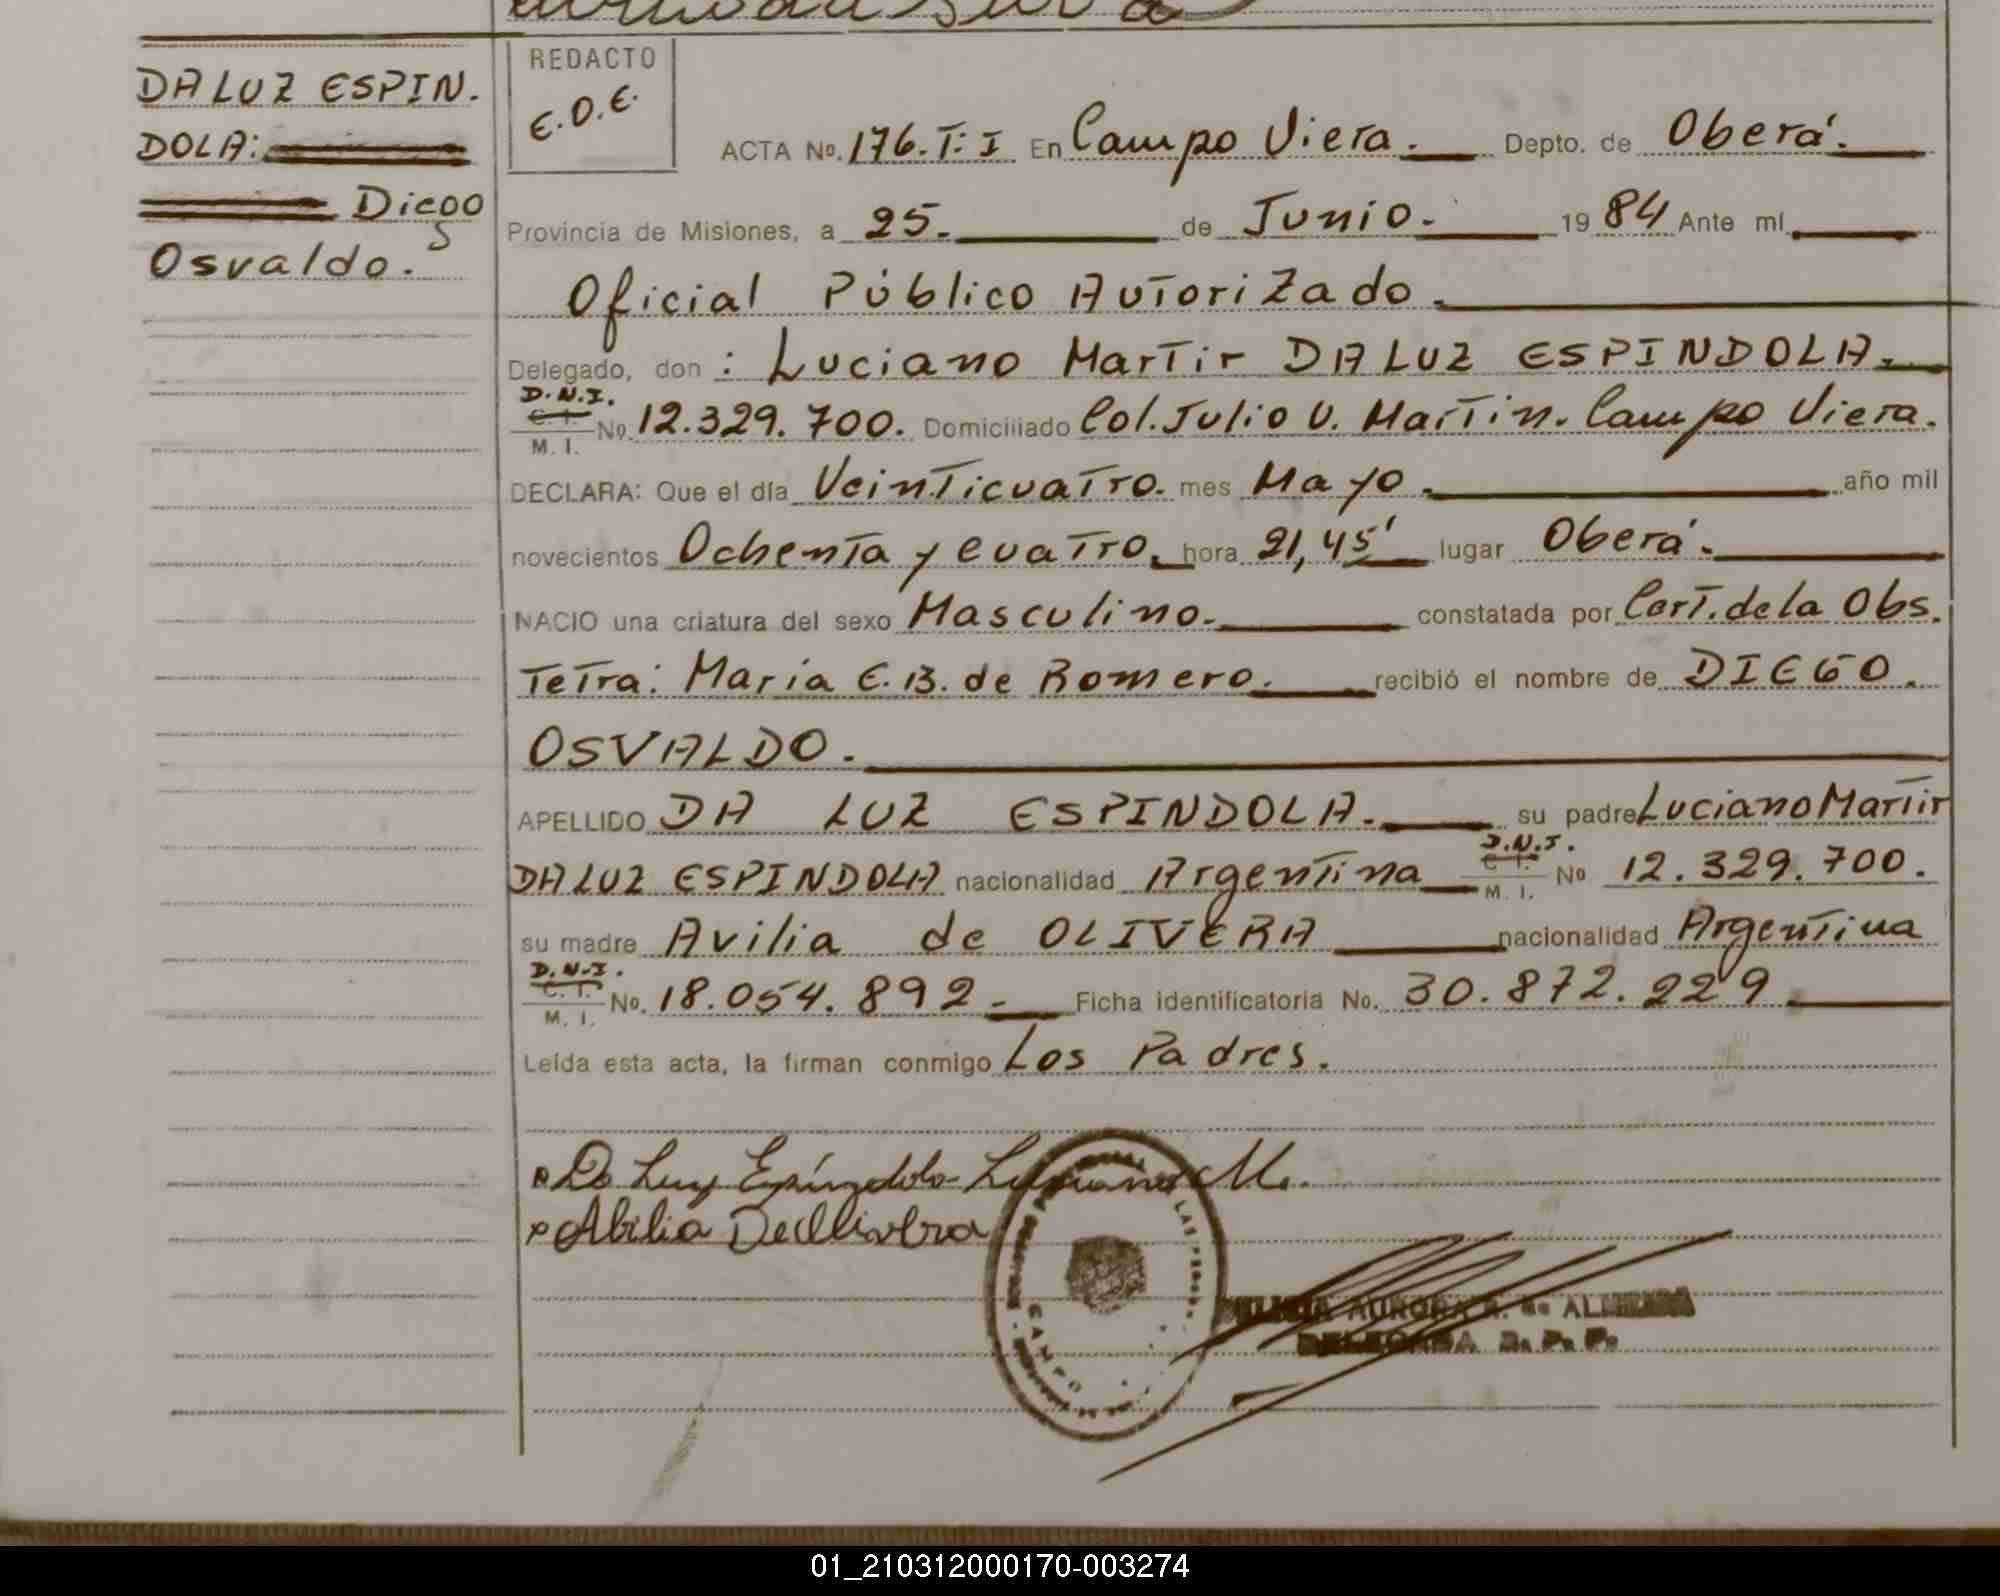 DA LUZ ESPIN.
DOLA:
Diego
Osvaldo.
REDACTO
E.O.E.
ACTA No. 176.T:I En Campo Viera. Depto. de Oberá.
Provincia de Misiones, a 25. de Junio. 1984 Ante mí
Oficial Público Autorizado.
Delegado, don : Luciano Martir DA LUZ ESPINDOLA.
D.N.I.
C. I.
M. I. No. 12.329.700. Domiciliado Col. Julio U. Martin. Campo Viera.
DECLARA: Que el día Veinticuatro. mes Mayo. año mil
novecientos Ochenta y cuatro. hora 21,45' lugar Oberá.
NACIO una criatura del sexo Masculino. constatada por Cert. de la Obs.
Tetra: Maria E. B. de Romero. recibió el nombre de DIEGO.
OSVALDO.
APELLIDO DA LUZ ESPINDOLA. su padre Luciano Martir
DA LUZ ESPINDOLA nacionalidad Argentina D.N.I. C. I. M. I. No 12.329.700.
su madre Avilia de OLIVERA nacionalidad Argentina
D.N.I.
C. I.
M. I. No. 18.054.892. Ficha identificatoria No. 30.872.229.
Leída esta acta, la firman conmigo Los Padres.
Da Luz Espíndola Luciano M.
Abilia De Olivera
CAMPO
AURORA
DELEGADA R. P. P.
01_210312000170-003274